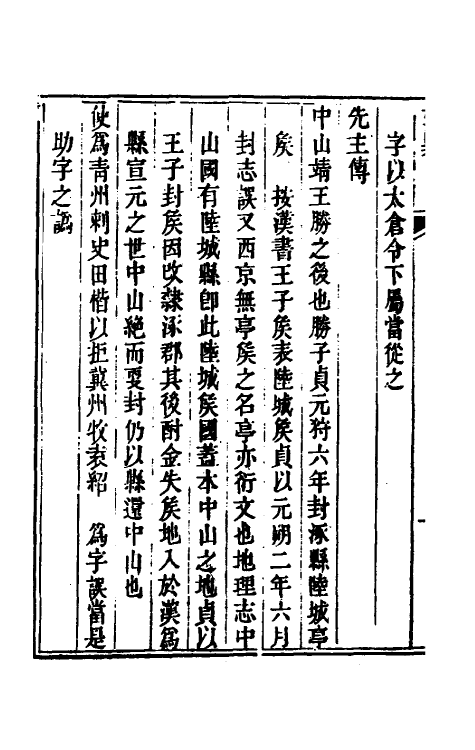 字以太倉令下屬當從之
先主傳
中山靖王勝之後也勝子貞元狩六年封涿縣陸城亭
矦　按漢書王子矦表陸城矦貞以元朔二年六月
封志誤又西京無亭矦之名亭亦衍文也地理志中
山國有陸城縣卽此陸城矦國蓋本中山之地貞以
王子封矦因攺隸涿郡其後酎金失矦地入於漢爲
縣宣元之世中山絶而更封仍以縣還中山也
使爲靑州刺史田楷以拒冀州牧袁紹　爲字誤當是
助字之譌